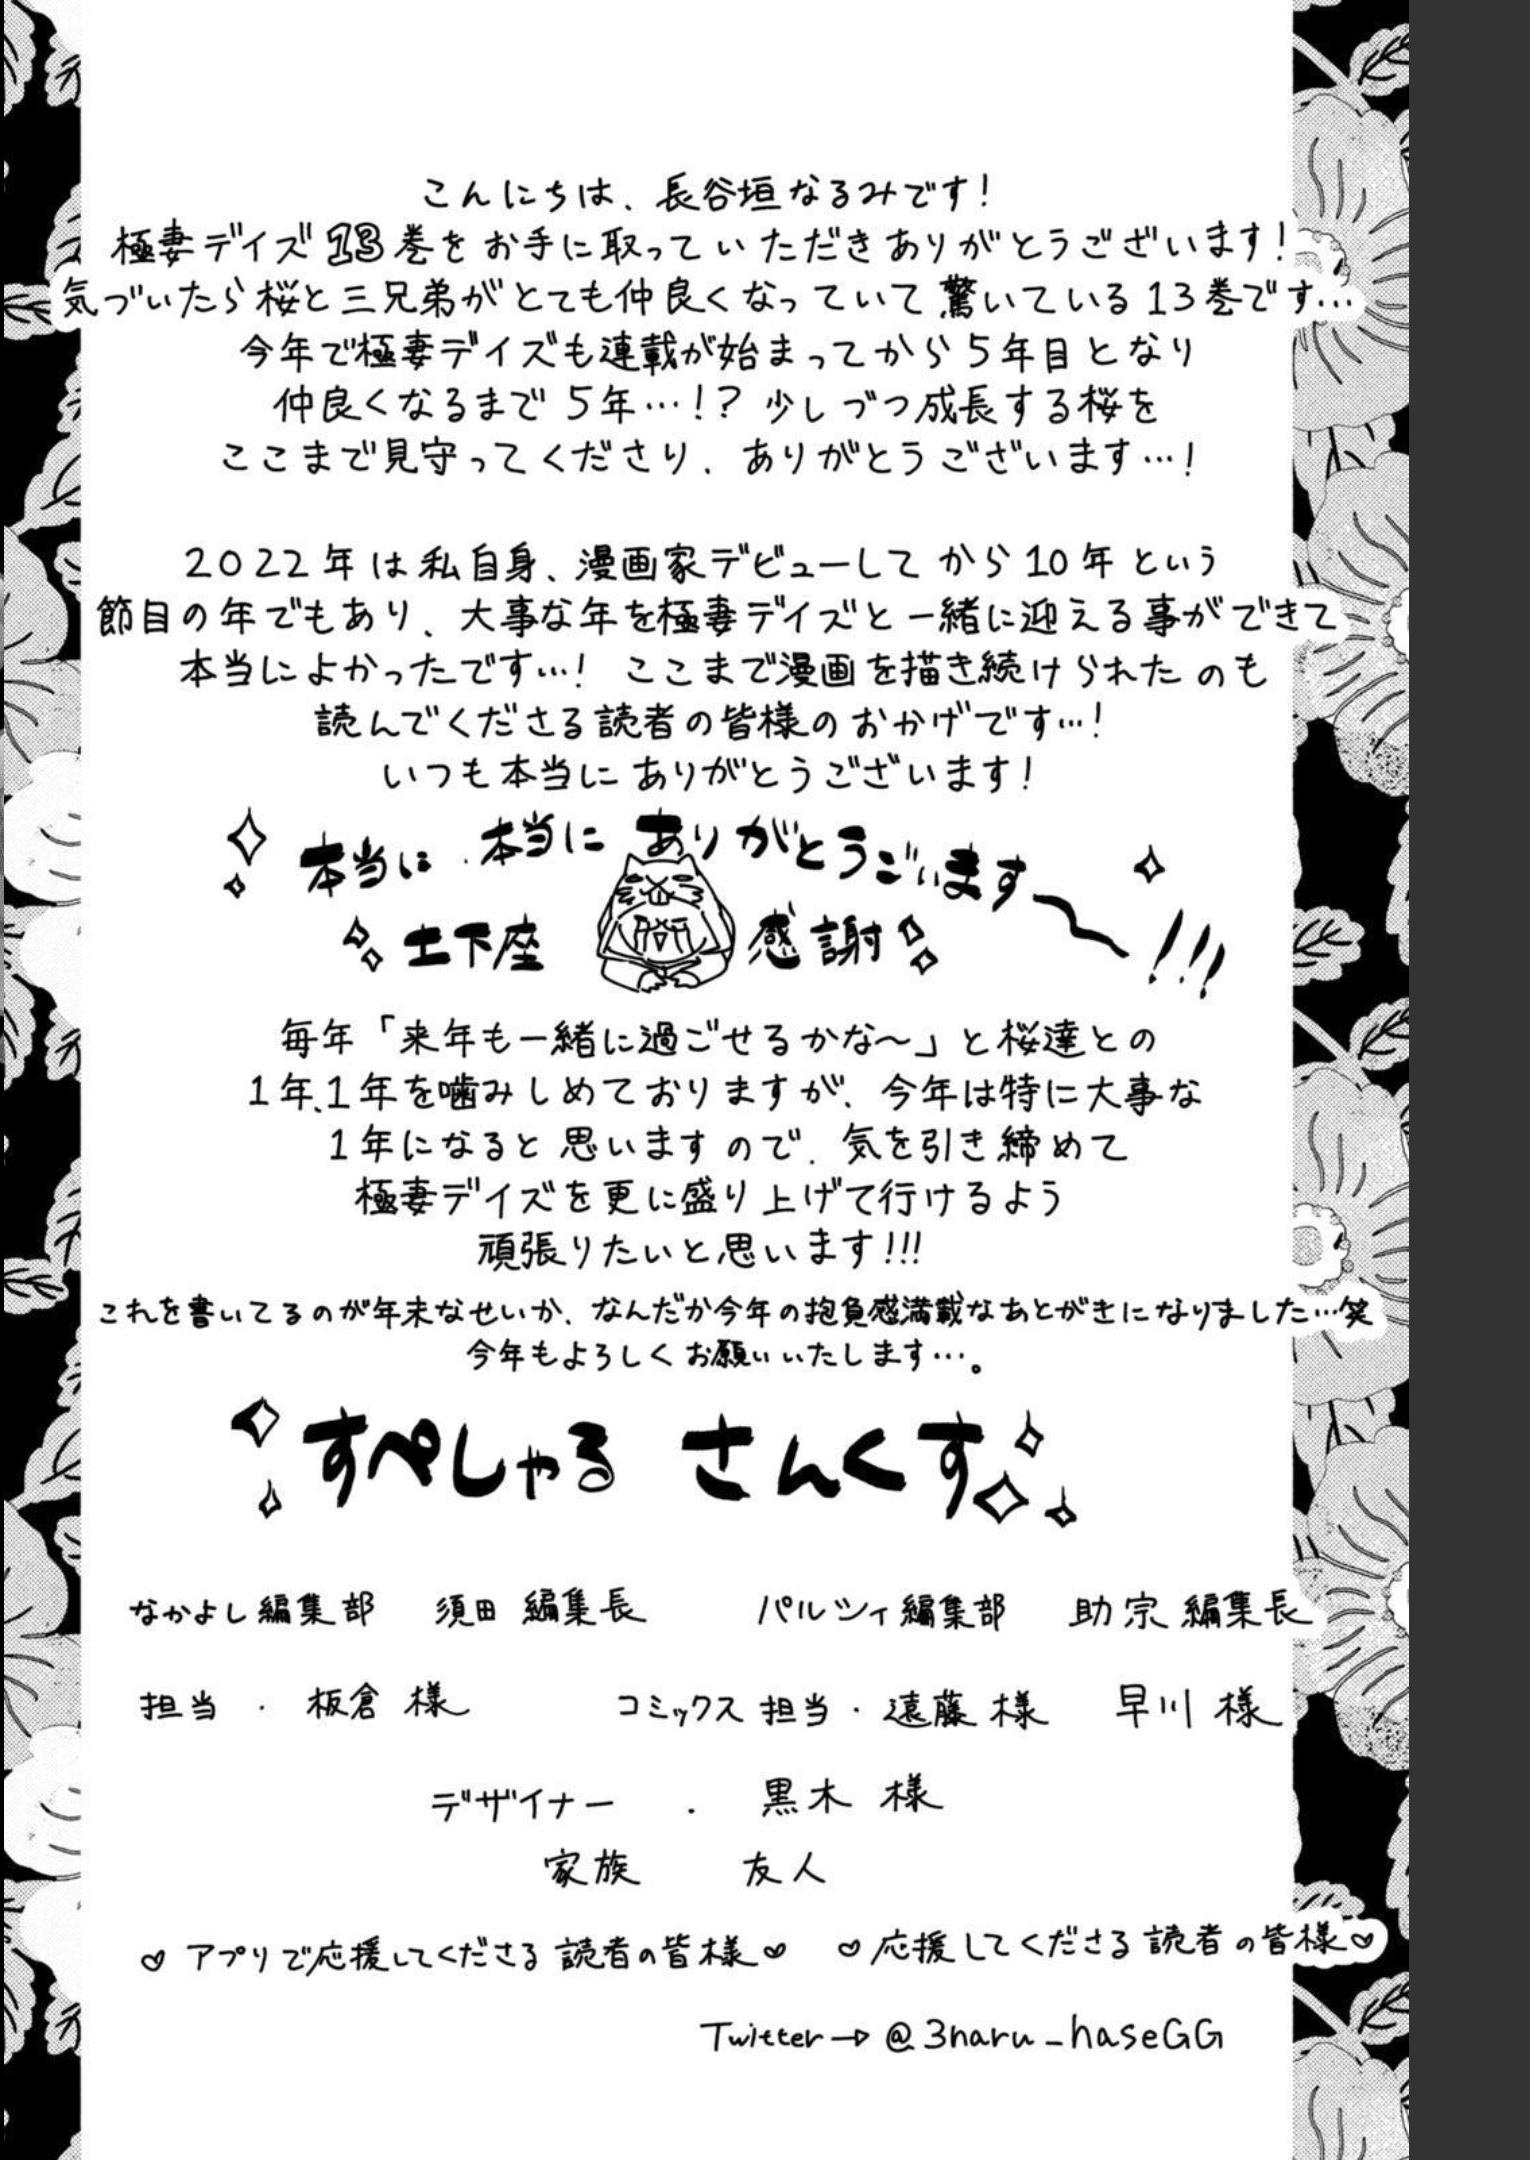 こんにちは、長谷垣なるみです!
極妻デイズ13巻をお手に取っていただきありがとうございます!
気づいたら桜と三兄弟がとても仲良くなっていて驚いている13巻です…
今年で極妻デイズも連載が始まってから5年目となり
仲良くなるまで5年…!?少しづつ成長する桜を
ここまで見守ってくださり、ありがとうございます…!
2022年は私自身、漫画家デビューしてから10年という
節目の年でもあり、大事な年を極妻デイズと一緒に迎える事ができて
本当によかったです…! ここまで漫画を描き続けられたのも
読んでくださる読者の皆様のおかげです…!
いつも本当にありがとうございます!
本当に、本当にありがとうごいます〜!!!
土下座 感謝
毎年「来年も一緒に過ごせるかな〜」と桜達との
1年、1年を噛みしめておりますが、今年は特に大事な
1年になると思いますので、気を引き締めて
極妻デイズを更に盛り上げて行けるよう
頑張りたいと思います!!!
これを書いてるのが年末なせいか、なんだか今年の抱負感満載なあとがきになりました…笑
今年もよろしくお願いいたします…。
すぺしゃる さんくす
なかよし編集部 須田 編集長 パルシィ編集部 助宗 編集長
担当・板倉 様 コミックス担当・遠藤 様 早川 様
デザイナー・黒木 様
家族 友人
♡アプリで応援してくださる読者の皆様♡ ♡応援してくださる読者の皆様♡
Twitter→@3naru_haseGG